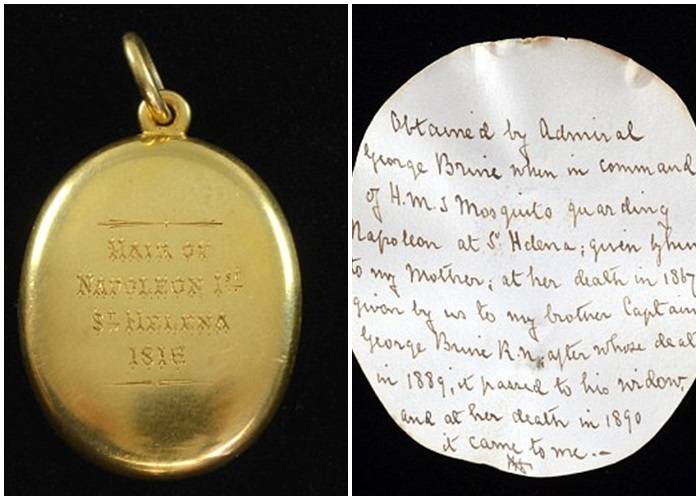 HAIR OF
NAPOLEON 1ST
ST HELENA
1816
Obtained by Admiral
George Brine when in command
of H.M.S Mosquito guarding
Napoleon at St Helena; given by him
to my Mother; at her death in 1867
given by us to my brother Captain
George Brine R.N. after whose death
in 1889, it passed to his widow,
and at her death in 1890
it came to me.—